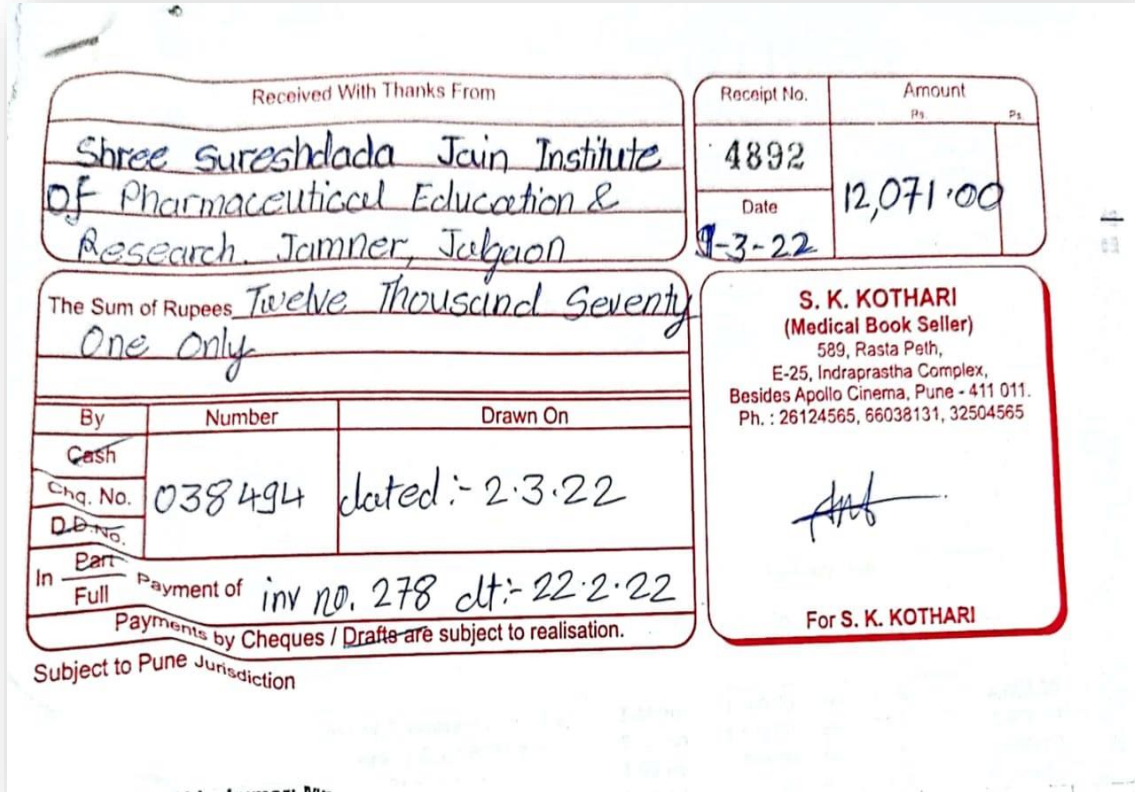 Received With Thanks From
Shree Sureshdada Jain Institute
Of Pharmaceutical Education &
Research. Jamner, Jalgaon
Receipt No.
4892
Date
-3-22
Amount
Rs.
Ps.
12,071.00
The Sum of Rupees Twelve Thousand Seventy
One Only
By
Number
Drawn On
Cash
Chq. No.
D.D.No.
038494
dated:- 2.3.22
In Part Full Payment of inv no. 278 dt:- 22.2.22
Payments by Cheques / Drafts are subject to realisation.
Subject to Pune Jurisdiction
S. K. KOTHARI
(Medical Book Seller)
589, Rasta Peth,
E-25, Indraprastha Complex,
Besides Apollo Cinema, Pune - 411 011.
Ph. : 26124565, 66038131, 32504565
For S. K. KOTHARI